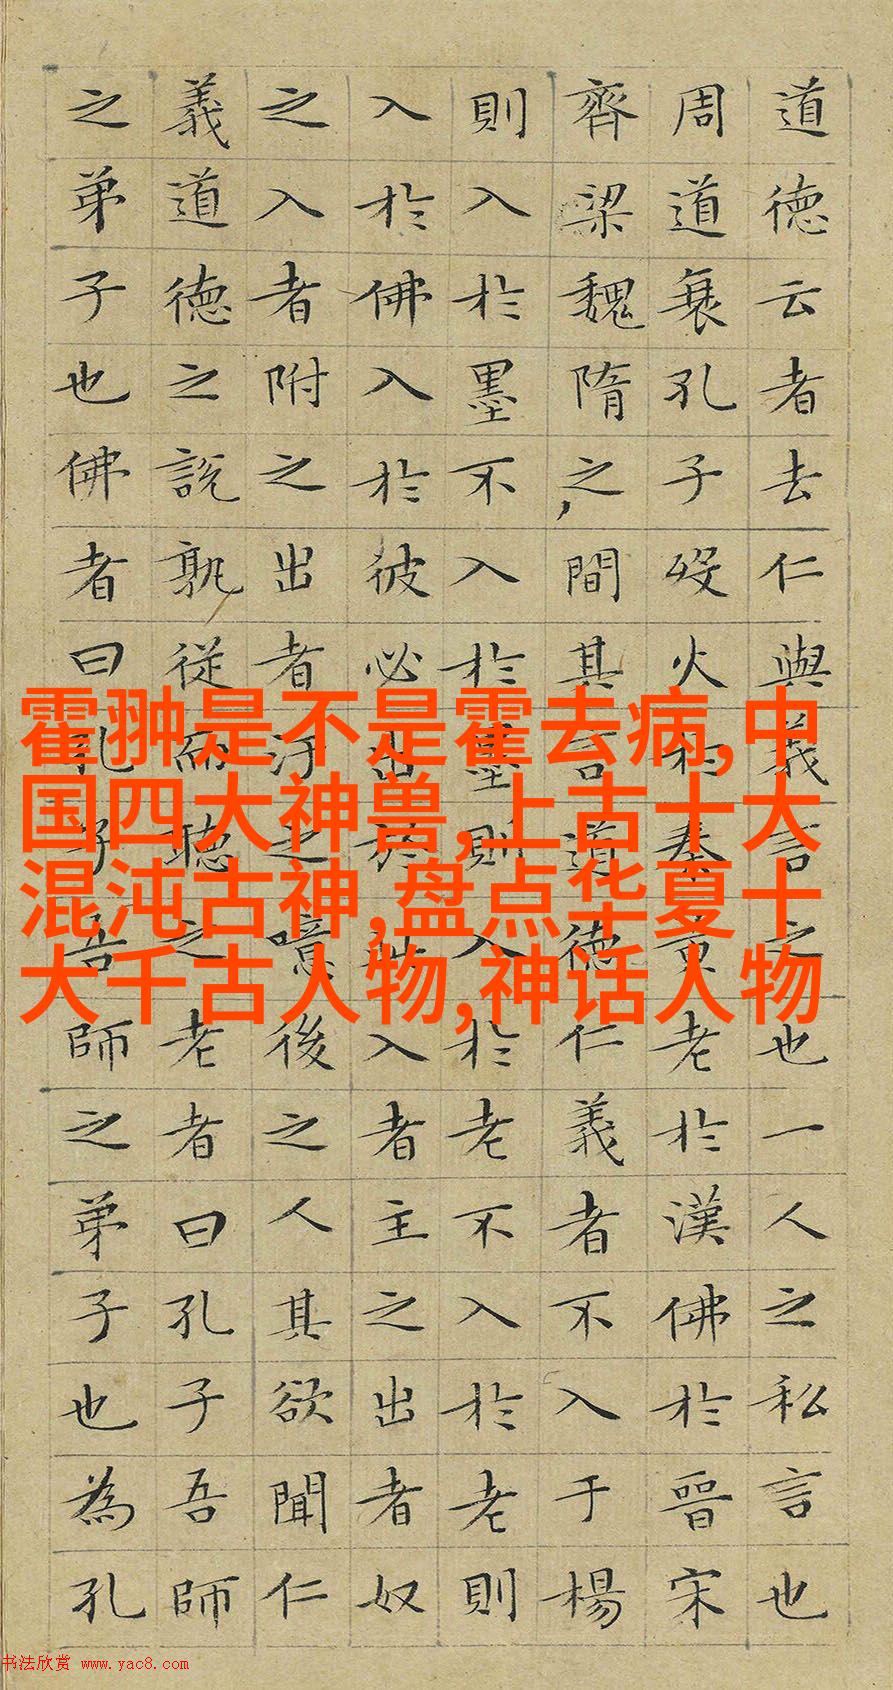 道德云者去仁與義言之也一人之私言也
周道衰孔子歿火於秦黃老於漢佛於晉宋
齊梁魏隋之間其言道德仁義者不入于楊
則入於墨不入於墨則入於老不入於老則
入於佛入於彼必出於此入者主之出者奴
之入者附之出者汙之噫後之人其欲聞仁
義道德之說孰從而聽之老者曰孔子吾師
之弟子也佛者曰孔子吾師之弟子也為孔
霍翀是不是霍去病,中
国四大神兽,上古十大
混沌古神,盘点华夏十
大千古人物,神话人物
书法欣赏 www.yac8.com